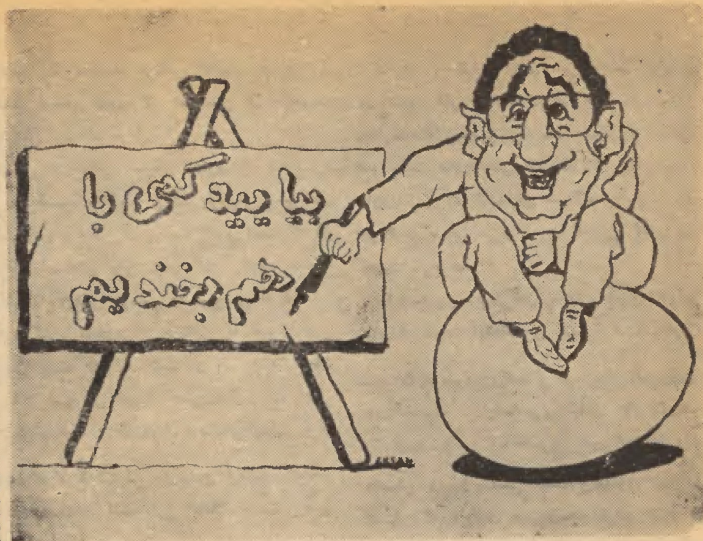 بیایید کمی با
هم بخندیم